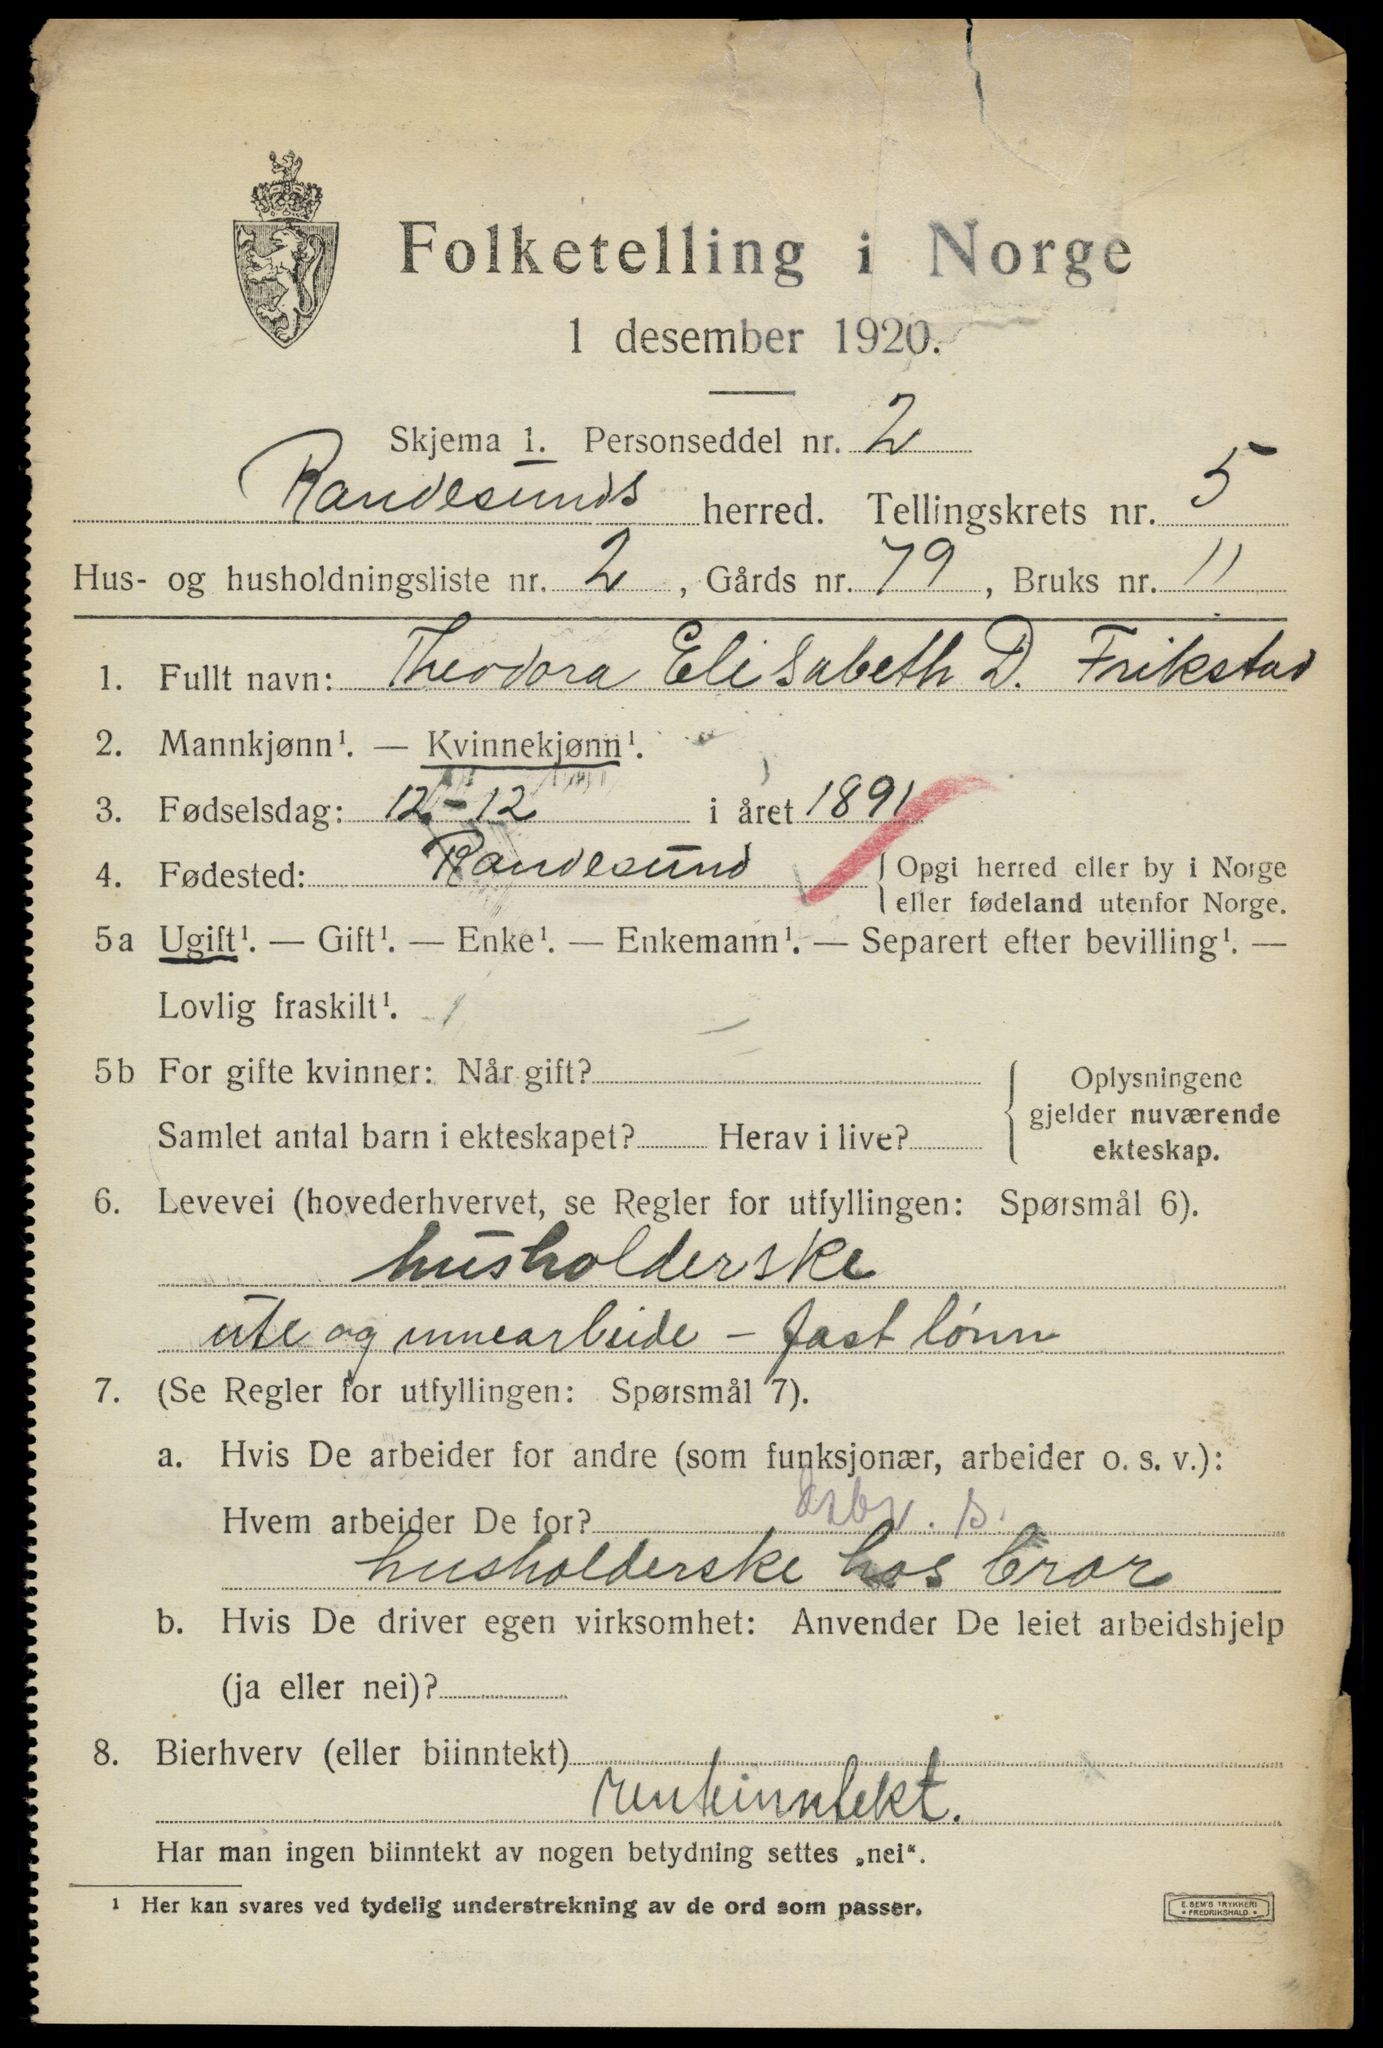 Folketelling i Norge
1 desember 1920.
Skjema 1. Personseddel nr. 2
Randesunds herred. Tellingskrets nr. 5
Hus- og husholdningsliste nr. 2, Gårds nr. 79, Bruks nr. 11
1. Fullt navn: Theodora Elisabeth D. Frikstad
2. Mannkjønn¹. — Kvinnekjønn¹.
3. Fødselsdag: 12-12 i året 1891
4. Fødested: Randesund { Opgi herred eller by i Norge
eller fødeland utenfor Norge.
5a Ugift¹. — Gift¹. — Enke¹. — Enkemann¹. — Separert efter bevilling¹. —
Lovlig fraskilt¹.
5b For gifte kvinner: Når gift?
Samlet antal barn i ekteskapet? Herav i live?
{ Oplysningene
gjelder nuværende
ekteskap.
6. Levevei (hovederhvervet, se Regler for utfyllingen: Spørsmål 6).
husholderske
ute og innearbeide - fast lønn
7. (Se Regler for utfyllingen: Spørsmål 7).
a. Hvis De arbeider for andre (som funksjonær, arbeider o. s. v.):
Hvem arbeider De for?
husholderske hos bror
b. Hvis De driver egen virksomhet: Anvender De leiet arbeidshjelp
(ja eller nei)?
8. Bierhverv (eller biinntekt)
renteinntekt.
Har man ingen biinntekt av nogen betydning settes „nei“.
¹ Her kan svares ved tydelig understrekning av de ord som passer.
E. SEM'S TRYKKERI
* FREDRIKSHALD *